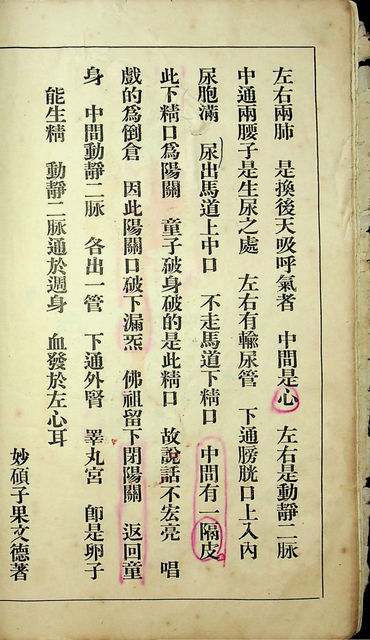 左右兩肺　是換後天吸呼氣者　中間是心　左右是動靜二脈
中通兩腰子是生尿之處　左右有輸尿管　下通膀胱口上入內
尿胞滿　尿出馬道上中口　不走馬道下精口　中間有一隔皮
此下精口爲陽關　童子破身破的是此精口　故說話不宏亮　唱
戲的爲倒倉　因此陽關口破下漏炁　佛祖留下閉陽關　返回童
身　中間動靜二脈　各出一管　下通外腎　睪丸宮　卽是卵子
能生精　動靜二脈通於週身　血發於左心耳
妙碩子果文德著